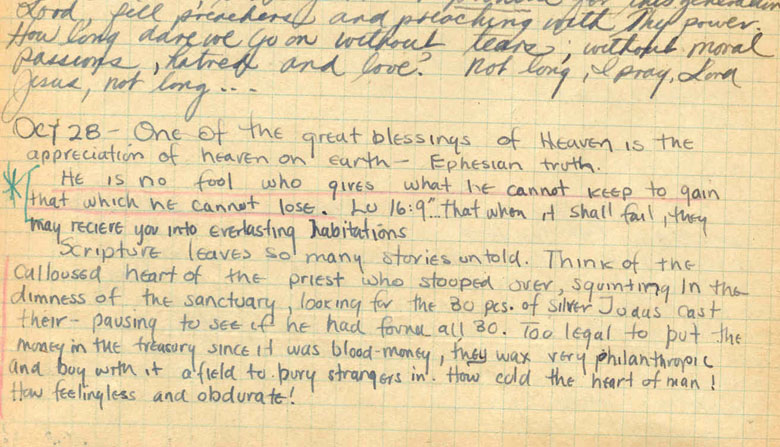 for this generation
Lord, fill preachers and preaching with Thy power.
How long dare we go on without tears, without moral
passions, hatred and love? Not long, I pray, Lord
Jesus, not long...
OCT 28 - One of the great blessings of Heaven is the
appreciation of heaven on earth - Ephesian truth.
He is no fool who gives what he cannot keep to gain
that which he cannot lose. Lu 16:9 "..that when it shall fail, they
may recieve you into everlasting habitations
Scripture leaves so many stories untold. Think of the
calloused heart of the priest who stooped over, squinting in the
dimness of the sanctuary, looking for the 30 pcs. of silver Judas cast
their - pausing to see if he had found all 30. Too legal to put the
money in the treasury since it was blood-money, they wax very philanthropic
and buy with it a field to bury strangers in. How cold the heart of man!
How feelingless and obdurate!